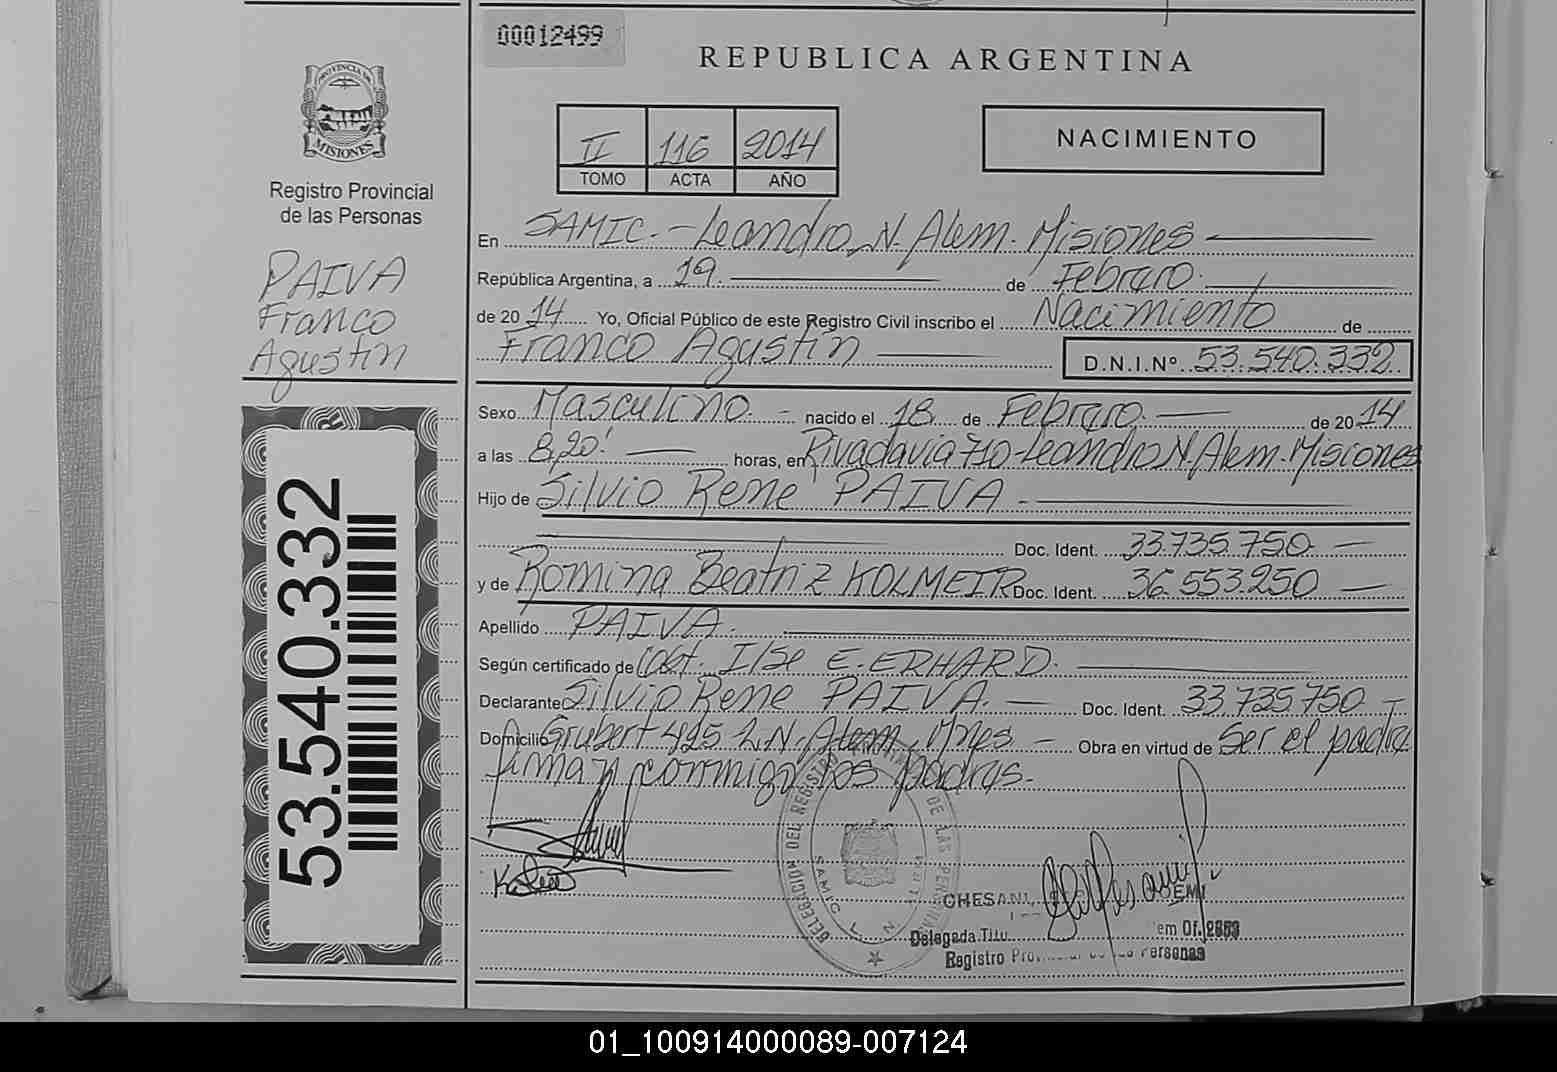 00012499
REPUBLICA ARGENTINA
PROVINCIA DE
MISIONES
Registro Provincial
de las Personas
II 116 2014
TOMO ACTA AÑO
NACIMIENTO
PAIVA
Franco
Agustin
53.540.332
En SAMIC.-Leandro N. Alem. Misiones
República Argentina, a 19. de Febrero.
de 2014 Yo, Oficial Público de este Registro Civil inscribo el Nacimiento de
Franco Agustin D.N.I.Nº 53.540.332
Sexo Masculino. - nacido el 18 de Febrero. de 2014
a las 8,20' horas, en Rivadavia 710-Leandro N. Alem. Misiones
Hijo de Silvio Rene PAIVA -
Doc. Ident. 33.735.750
y de Romina Beatriz KOLMEIR Doc. Ident. 36.553.250
Apellido PAIVA.
Según certificado de Obst. Ilse E. ERHARD.
Declarante Silvio Rene PAIVA. Doc. Ident. 33.735.750
Domicilio Grubert 425 L.N. Alem, Mnes - Obra en virtud de Ser el padre
firman conmigo los padres.-
DELEGACION DEL REGISTRO DE LAS PERSONAS
SAMIC L. N.
CHESANI,
Delegada Titu
Registro Personas
01_100914000089-007124